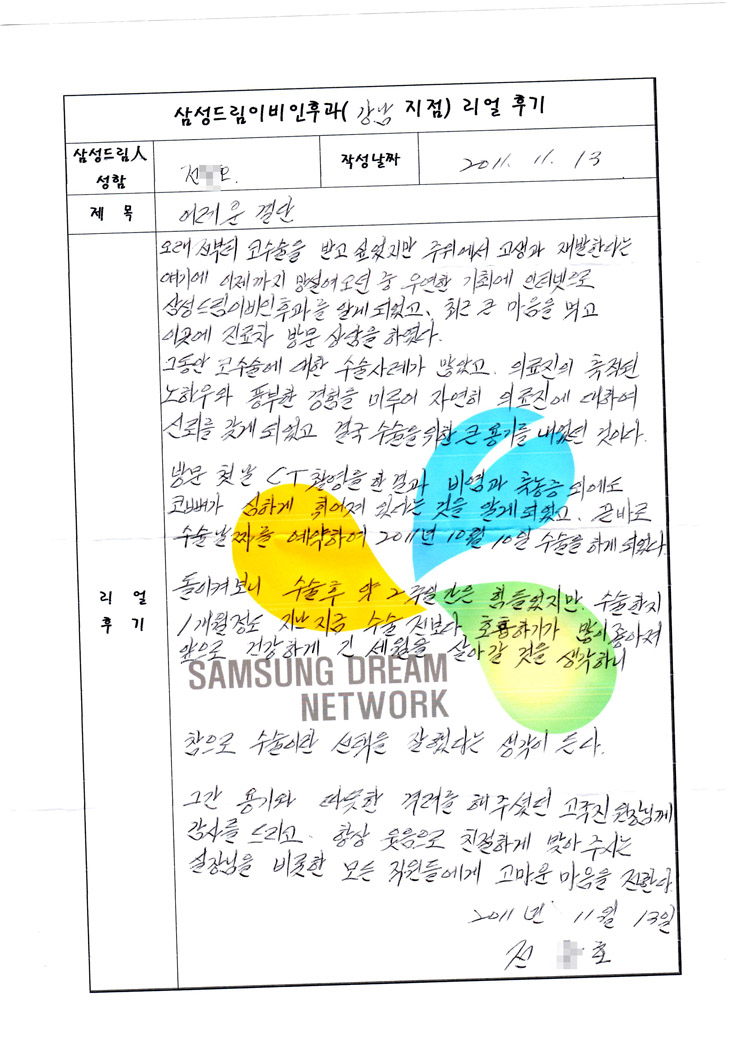 삼성드림이비인후과( 강남 지점) 리얼 후기
삼성드림人 성함
전 호.
작성날짜
2011. 11. 13
제 목
어려운 결단
리 얼
후 기
오래전부터 코수술을 받고 싶었지만 주위에서 고생과 재발한다는
얘기에 이제까지 망설여오던 중 우연한 기회에 인터넷으로
삼성드림이비인후과를 알게되었고, 최근 큰 마음을 먹고
이곳에 진료차 방문 상담을 하였다.
그동안 코수술에 대한 수술사례가 많았고. 의료진의 축적된
노하우와 풍부한 경험을 미루어 자연히 의료진에 대하여
신뢰를 갖게 되었고 결국 수술을위한 큰 용기를 내었던 것이다.
방문 첫날 CT 촬영을 한결과 비염과 축농증 외에도
코뼈가 심하게 휘어져 있다는 것을 알게되었고, 곧바로
수술날짜를 예약하여 2011년 10월 10일 수술을 하게 되었다
돌이켜보니 수술후 약 2주일간은 힘들었지만, 수술한지
1개월정도 지난지금 수술 전보다 호흡하기가 많이좋아져
앞으로 건강하게 긴 세월을 살아갈 것을 생각하니
SAMSUNG DREAM
NETWORK
참으로 수술이란 선택을 잘했다는 생각이 든다.
그간 용기와 따뜻한 격려를 해주셨던 고국진 원장님께
감사를 드리고. 항상 웃음으로 친절하게 맞아 주시는
실장님을 비롯한 모든 직원들에게 고마운 마음을 전한다
2011년 11월 13일
전 호